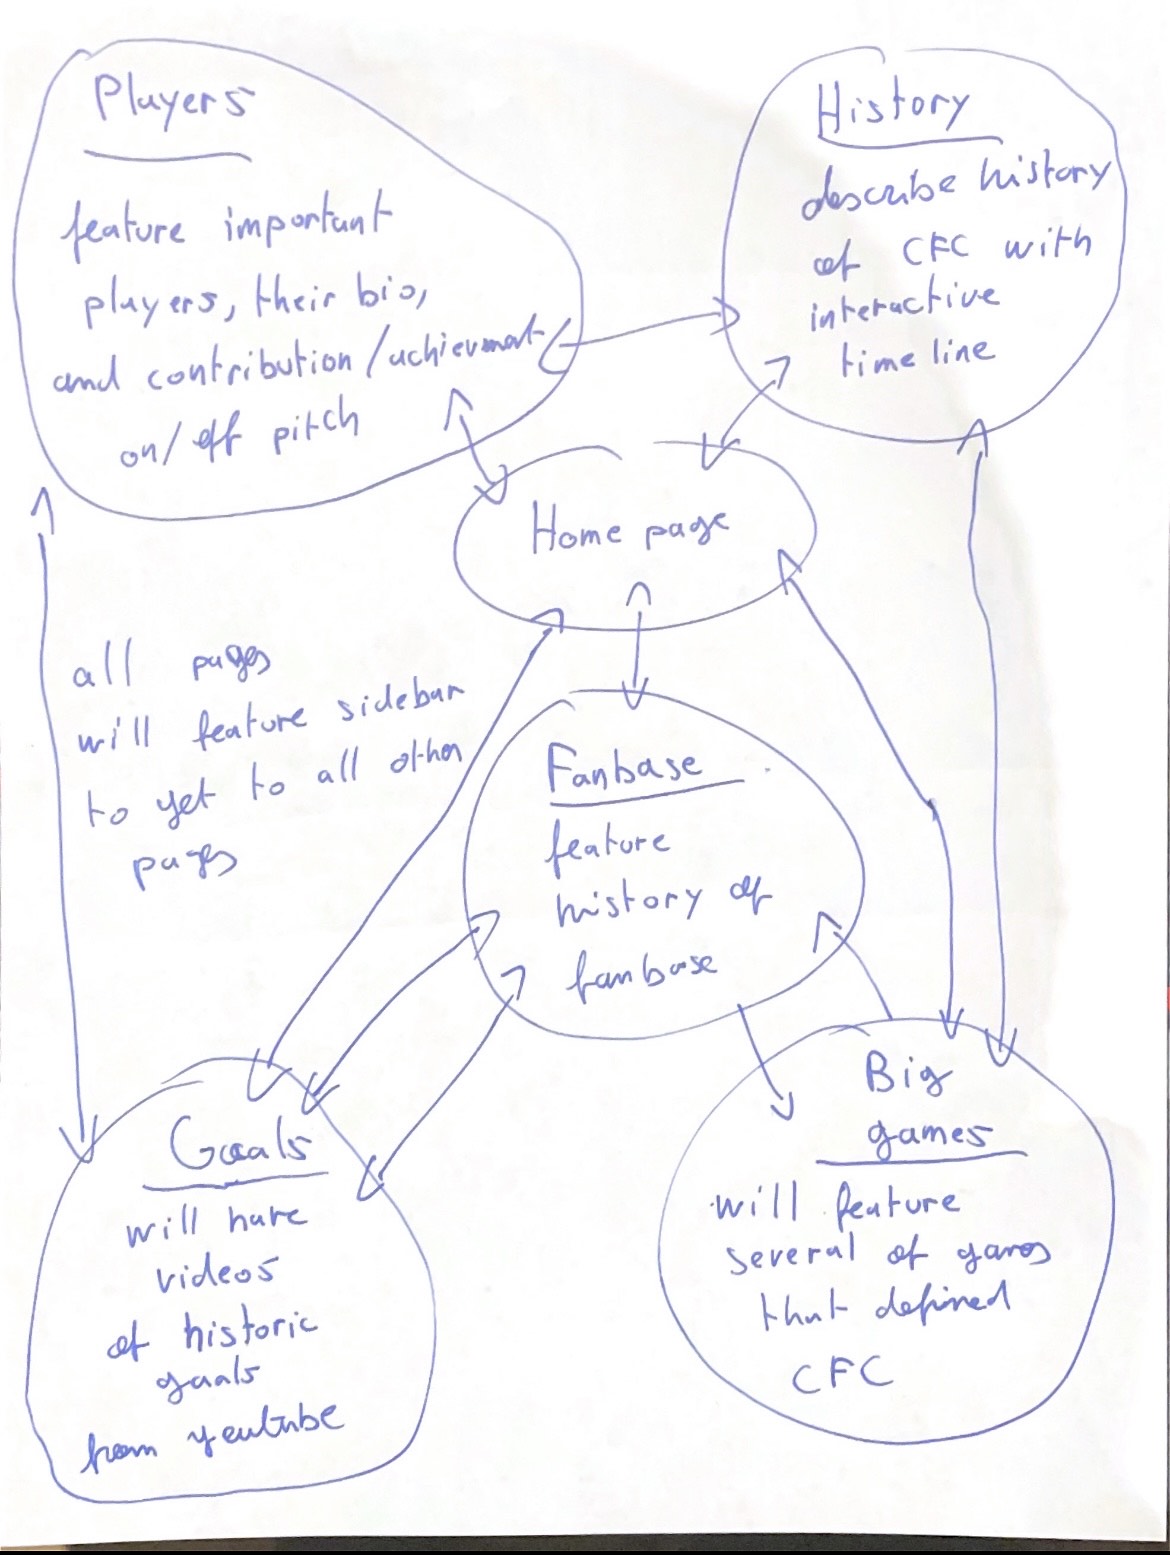 Players
feature important
players, their bio,
and contribution/achievment
on/off pitch
History
describe history
of CFC with
interactive
time line
Home page
all pages
will feature sidebar
to get to all other
pages
Fanbase
feature
history of
fanbase
Goals
will have
videos
of historic
goals
from youtube
Big
games
will feature
several of games
that defined
CFC